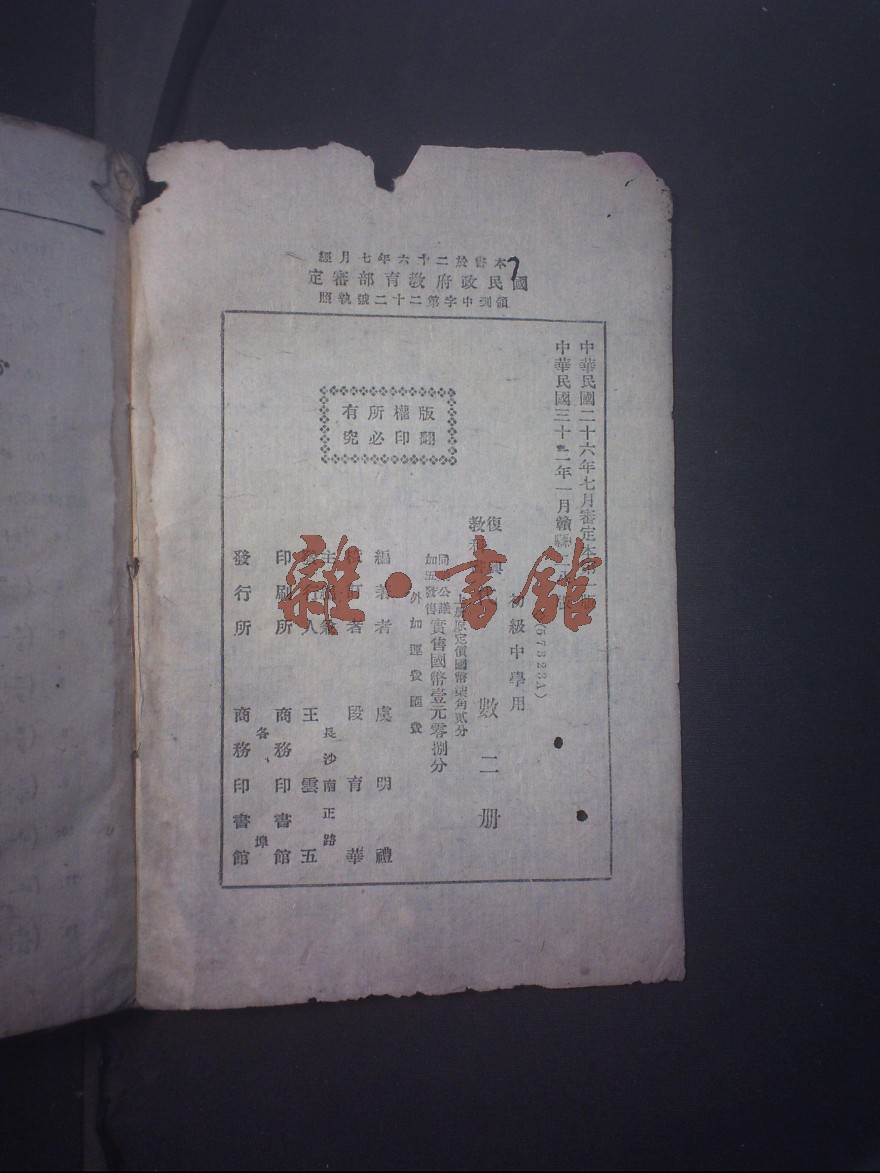 本書於二十六年七月經
國民政府教育部審定
領到中字第二十二號執照
中華民國二十六年七月審定本第一版
中華民國三十一年一月贛縣
(67323A)
初級中學用
復興
教科
數二册
上册原定價國幣柒角貳分
同業公議
加五發售
實售國幣壹元零捌分
外加運費匯費
版權所有
翻印必究
編著者 虞明禮
校訂者 段育華
長沙南正路
發行人 王雲五
印刷所 商務印書館
各埠
發行所 商務印書館
雜·書館